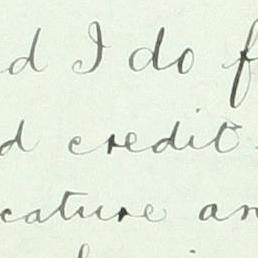 d I do f
d credit
cature an